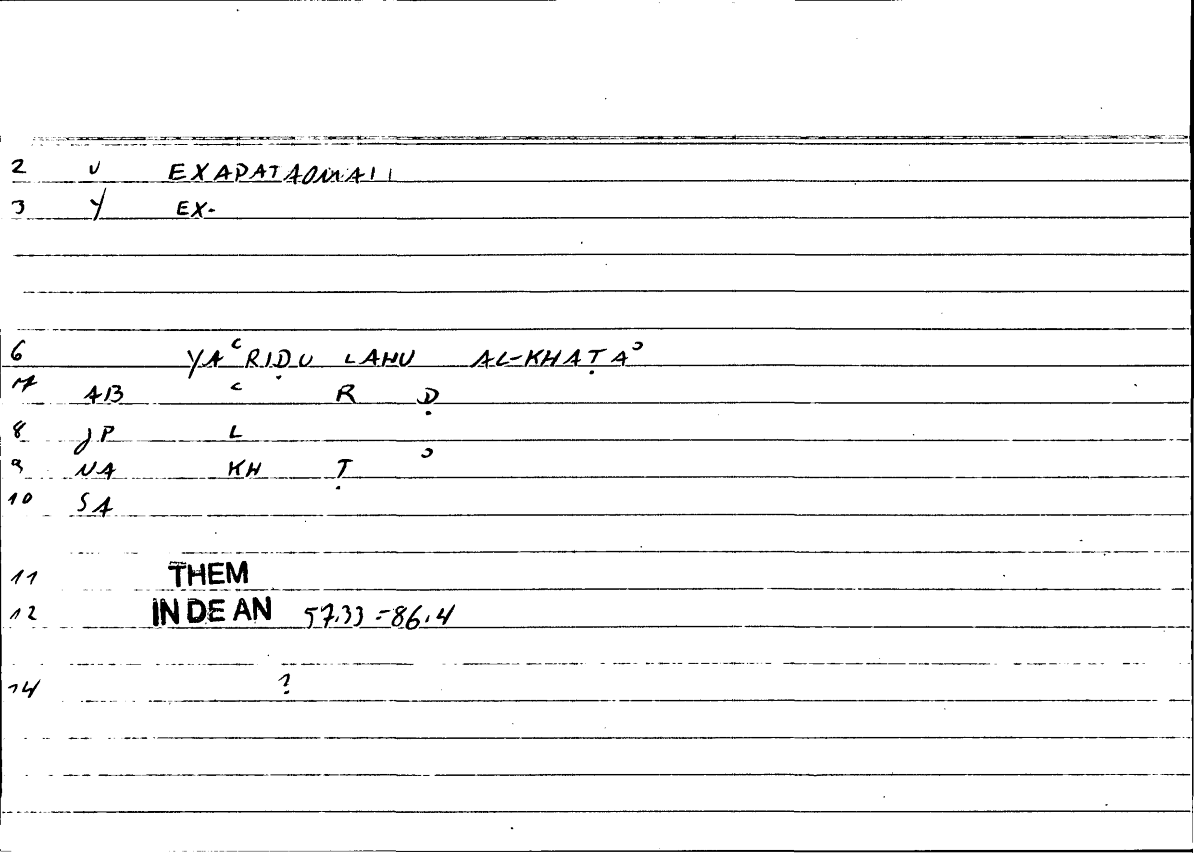 2 V EXAPATAOMAI I
3 Y EX-
6 YAʿRIḌU LAHU AL-KHAṬAʾ
7 AB ʿ R Ḍ
8 JP L
9 NA KH Ṭ ʾ
10 SA
11 THEM
12 IN DE AN 57.33=86.4
14 ?